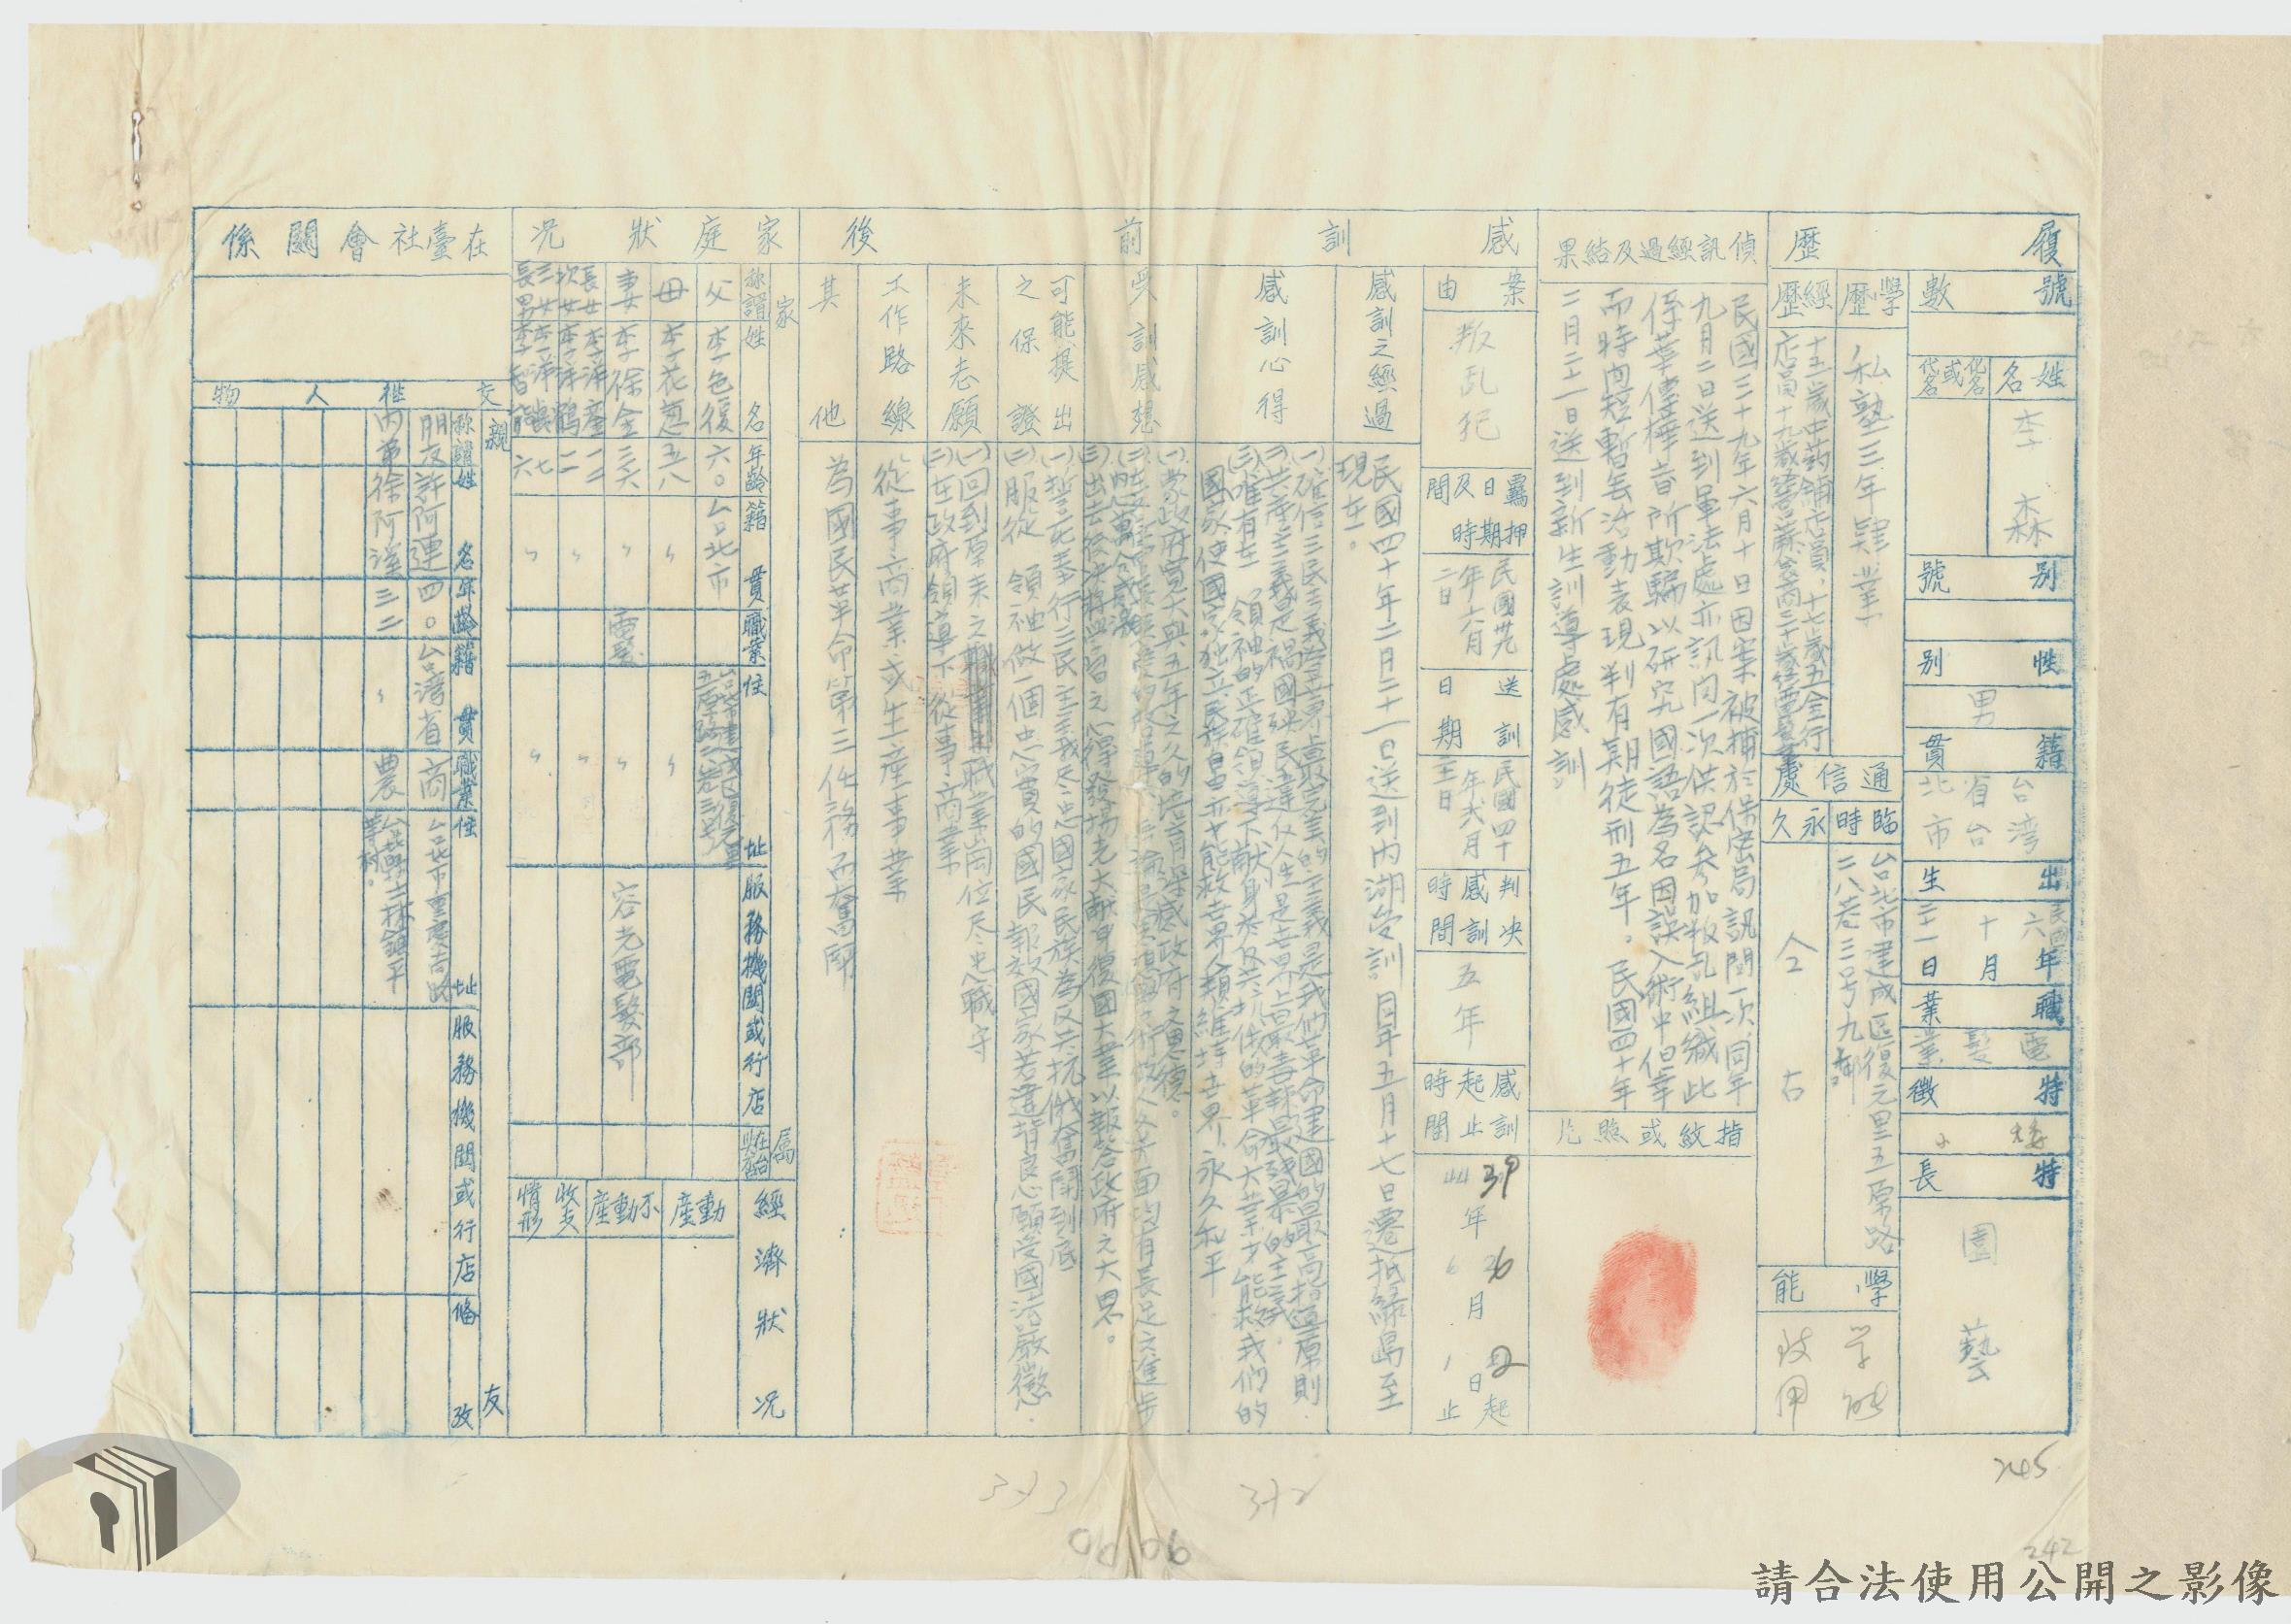 履歷
號數
姓名
李森
化名或代名
別號
性別
男
籍貫
台湾省台北市
出生
民國六年十月二十一日
職業
電髮業
特徵
矮小
特長
園藝
學歷
私塾三年肄業
經歷
十五歲中葯舖店員，十七歲五金行
通信處
臨時
台北市建成區復元里五原路
二八巷三号九鄰
永久
仝右
學能
偵訊經過及結果
民國三十九年六月十日因案被捕於保密局訊問一次，同年
九月二日送到軍法處亦訊问一次供認參加叛乱組織此
係華傳樺音所欺騙以研究國語為名因誤入術中但幸
而時间短暫無活動表現判有期徒刑五年。民國四十年
二月二十一日送到新生訓導處感訓
指紋或照片
感訓前後
案由
叛乱犯
羈押日期及時間
民國卅九年六月二日
送訓日期
民國四十年弍月二一日
判決感訓時間
五年
感訓起止時間
39年6月2日起
44年6月1日止
感訓之經過
民國四十年二月二十一日送到内湖受訓同年五月十七日遷抵綠島至
現在。
感訓心得
(一)確信三民主義為世界最完善的主義是我們革命建國的最高指導原則.
(二)共產主義是禍國殃民違反人生是世界上最毒辣最殘暴的主義.
(三)唯有在　領袖的正確領導下獻身於反共抗俄的革命大業才能救我們的
國家使國家独立民族自由亦才能救世界人類維持世界永久和平.
受訓感想
(一)蒙政府寬大與五年之久的培育深感政府之恩德。
(三)出去後決將所習之心得發揚光大献身復國大業以報答政府之大恩。
可能提出之保證
(一)誓死奉行三民主義我尽忠國家民族為反共抗俄奮鬪到底
(二)服從　領袖做一個忠實的國民報效國家若違背良心願受國法嚴懲.
未來志願
(一)回到原来之職業崗位尽忠職守
(二)在政府領導下從事商業
工作路線
從事商業或生産事業
其他
為國民革命第三任務而奮鬪
家庭狀況
家屬
称謂
姓名
年齡
籍貫
職業
住址
服務機關或行店
在台與否
父
李色復
六〇
台北市
母
李花葱
五八
〃
〃
妻
李徐全
三六
〃
電髮
〃
容光電髮部
長女
次女
三女
長男
七
六
經濟狀況
動産
不動産
收支情形
在臺社會關係
交往人物
親友
称謂
姓名
年齡
籍貫
職業
住址
服務機關或行店
備攷
朋友
許阿連
四〇
台湾省
商
台北市重慶南路
内弟
徐阿溪
三二
〃
農
台北縣士林鎮平
等村。
245
242
372
373
請合法使用公開之影像